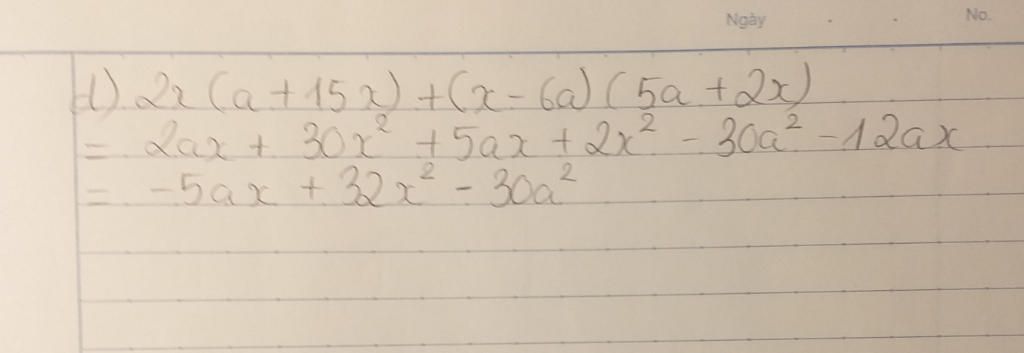 Ngày . . No.
d) 2x (a + 15x) + (x - 6a) (5a + 2x)
= 2ax + 30x² + 5ax + 2x² - 30a² - 12ax
= -5ax + 32x² - 30a²